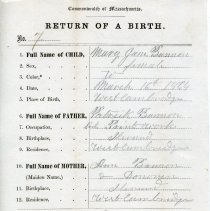 Commonwealth of Massachusetts.
RETURN OF A BIRTH.
No. 7
1. Full Name of CHILD, Mary Jane Bannon
2. Sex, female
3. Color,* W
4. Date, March 16th
5. Place of Birth, West Cambridge
6. Full Name of FATHER, Patrick Bannon
7. Occupation,
8. Birthplace,
9. Residence, West Cambridge
10. Full Name of MOTHER, Bannon
(Maiden Name.)
11. Birthplace,
12. Residence, West Cambridge